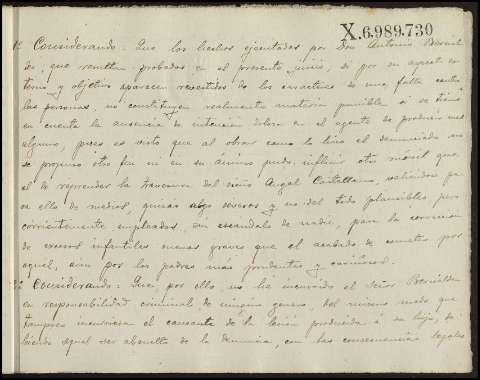 X.6.989.730
1º Considerando: Que los hechos ejecutados por Don Antonio Bernal
des, que resultan probados en el presente juicio, si por su aspecto ex
terno y objetivo aparecen revestidos de los caracteres de una falta contra
las personas, no constituyen realmente materia punible si se tiene
en cuenta la ausencia de intención dolosa en el agente de producir mal
alguno, pues es visto que al obrar como lo hizo el denunciado no
se propuso otro fin ni en su ánimo pudo influir otro móvil que
el de reprender la travesura del niño Angel Castellano, valiéndose pa
ra ello de medios, quizás algo severos y no del todo plausibles pero
corrientemente empleados, sin escándalo de nadie, para la corrección
de excesos infantiles menos graves que el acabado de cometer por
aquel, aún por los padres más prudentes y cariñosos.
2º Considerando: Que, por ello, no ha incurrido el Señor Bernaldes
en responsabilidad criminal de ningún genero, del mismo modo que
tampoco incurriría el causante de la lesión producida á su hijo, de
biendo aquel ser absuelto de la denuncia, con las consecuencias legales